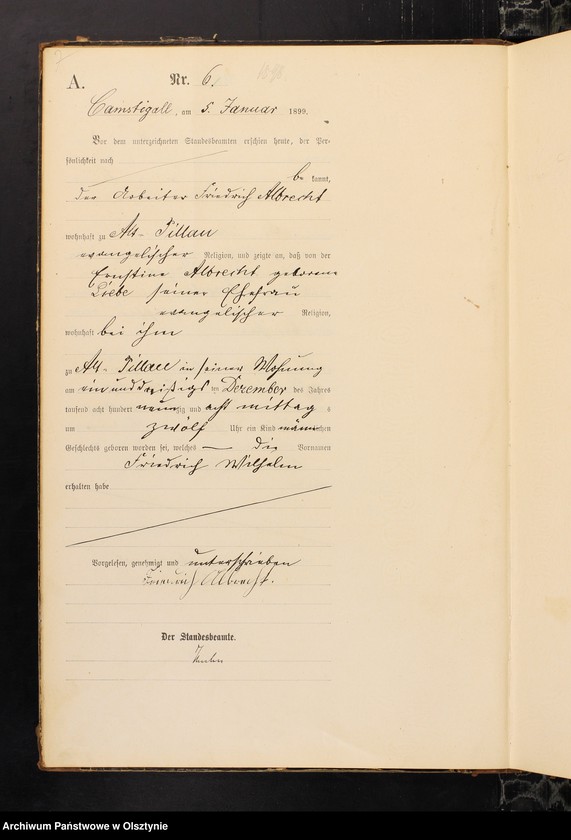 A.
Nr. 6.
Camstigall, am 5. Januar 1899.
Vor dem unterzeichneten Standesbeamten erschien heute, der Per-
sönlichkeit nach
be kannt,
der Arbeiter Friedrich Albrecht
wohnhaft zu Alt-Pillau
evangelischer Religion, und zeigte an, daß von der
Ernstine Albrecht geborene
Liebe seiner Ehefrau
evangelischer Religion,
wohnhaft bei ihm
zu Alt-Pillau in seiner Wohnung
am ein und dreißigs ten Dezember des Jahres
tausend acht hundert neunzig und acht mittag s
um zwölf Uhr ein Kind männlichen
Geschlechts geboren worden sei, welches — die Vornamen
Friedrich Wilhelm
erhalten habe
Vorgelesen, genehmigt und unterschrieben
Friedrich Albrecht.
Der Standesbeamte.
Archiwum Państwowe w Olsztynie